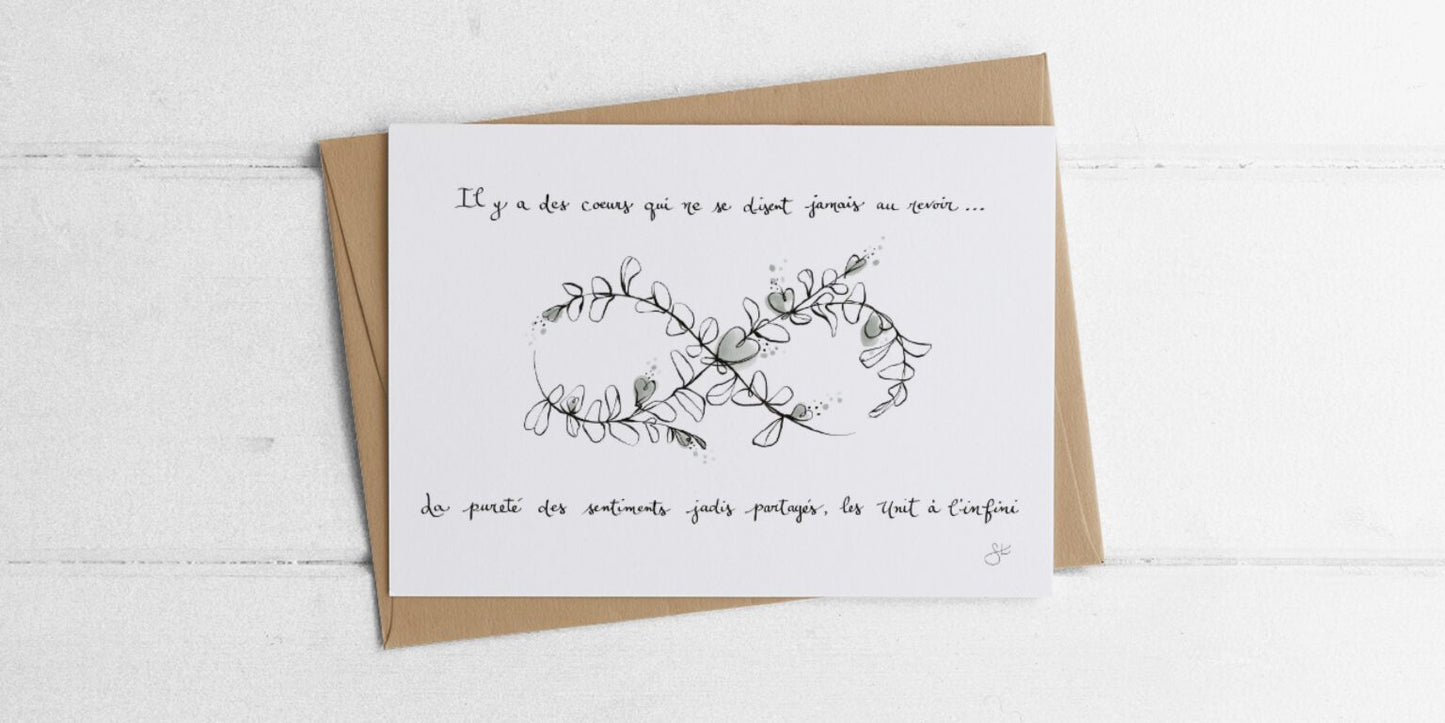 Il y a des coeurs qui ne se disent jamais au revoir...
La pureté des sentiments jadis partagés, les Unit à l'infini